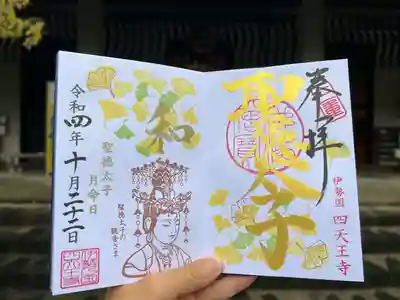 奉拝
聖徳太子
伊勢國 四天王寺
和
聖徳太子
月命日
令和四年十月二十二日
聖徳太子の
観音さま